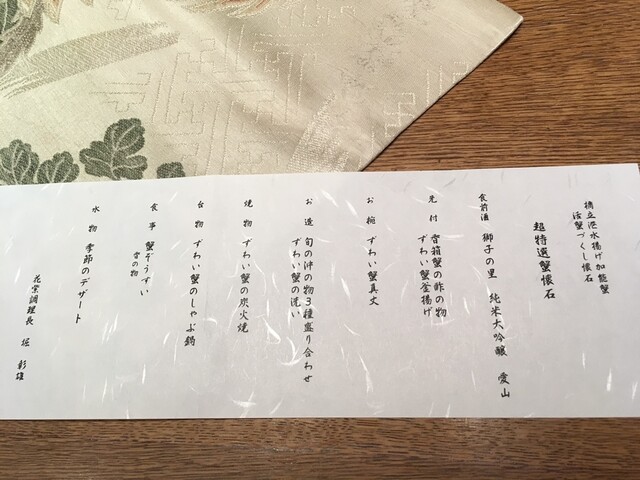 橋立港水揚げ加能蟹
活蟹づくし懐石
超特選蟹懐石
食前酒 獅子の里 純米大吟醸 愛山
先付 香箱蟹の酢の物
ずわい蟹釜揚げ
お椀 ずわい蟹真丈
お造 旬の沖の物3種盛り合わせ
ずわい蟹の洗い
焼物 ずわい蟹の炭火焼
台物 ずわい蟹のしゃぶ鍋
食事 蟹ぞうすい
香の物
水物 季節のデザート
花紫調理長 堀 彰雄